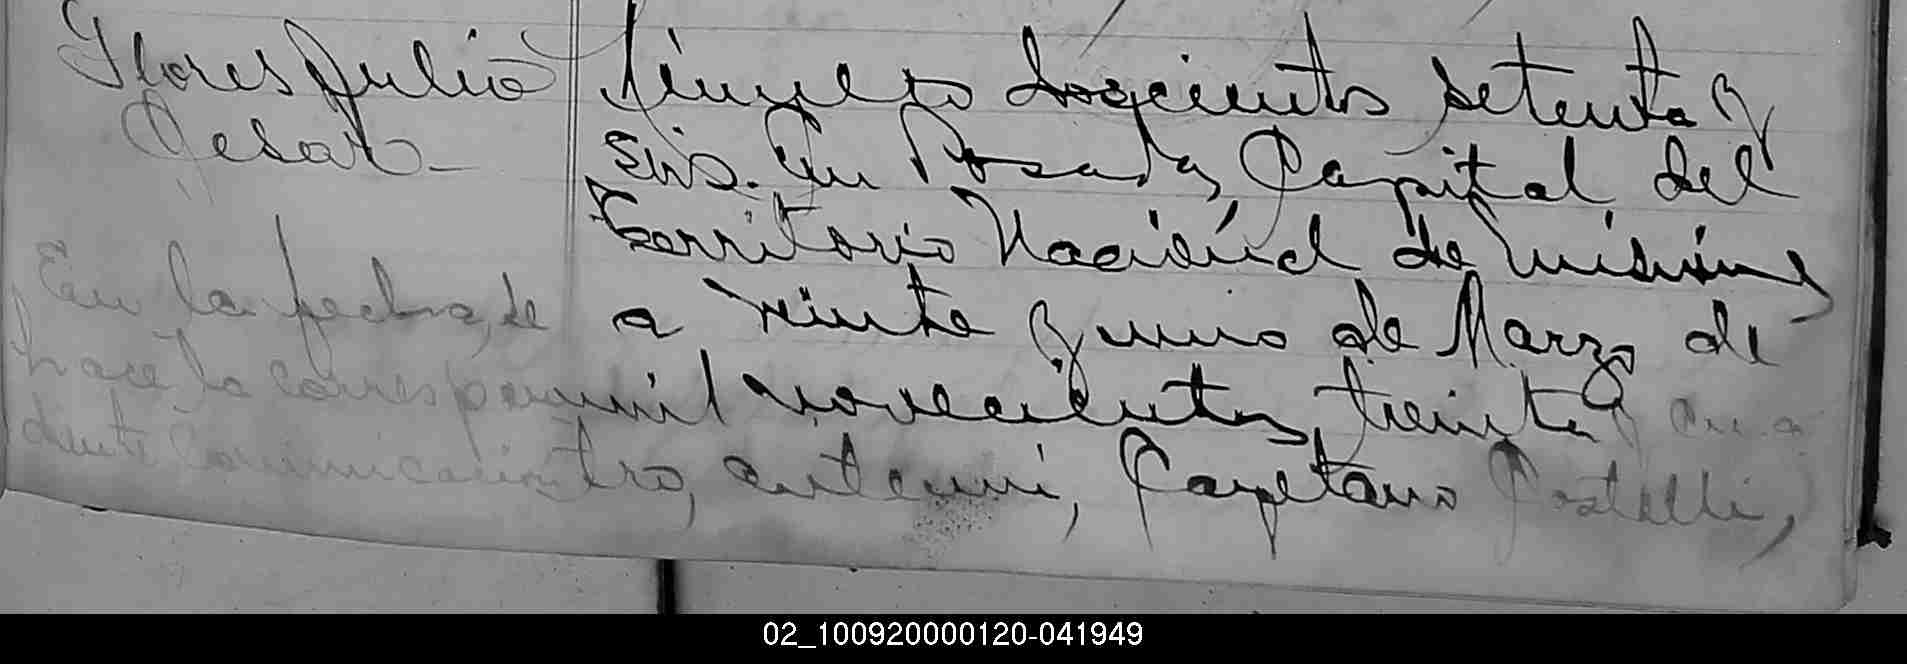 Flores Julio
Cesar-
En la fecha, se
hace la correspon
diente Comunicación
Número doscientos setenta y
seis. En Posadas, Capital del
Territorio Nacional de Misiones
a veinte y uno de Marzo de
mil novecientos treinta y cua
tro, ante mi, Cayetano Castelli,
02_100920000120-041949